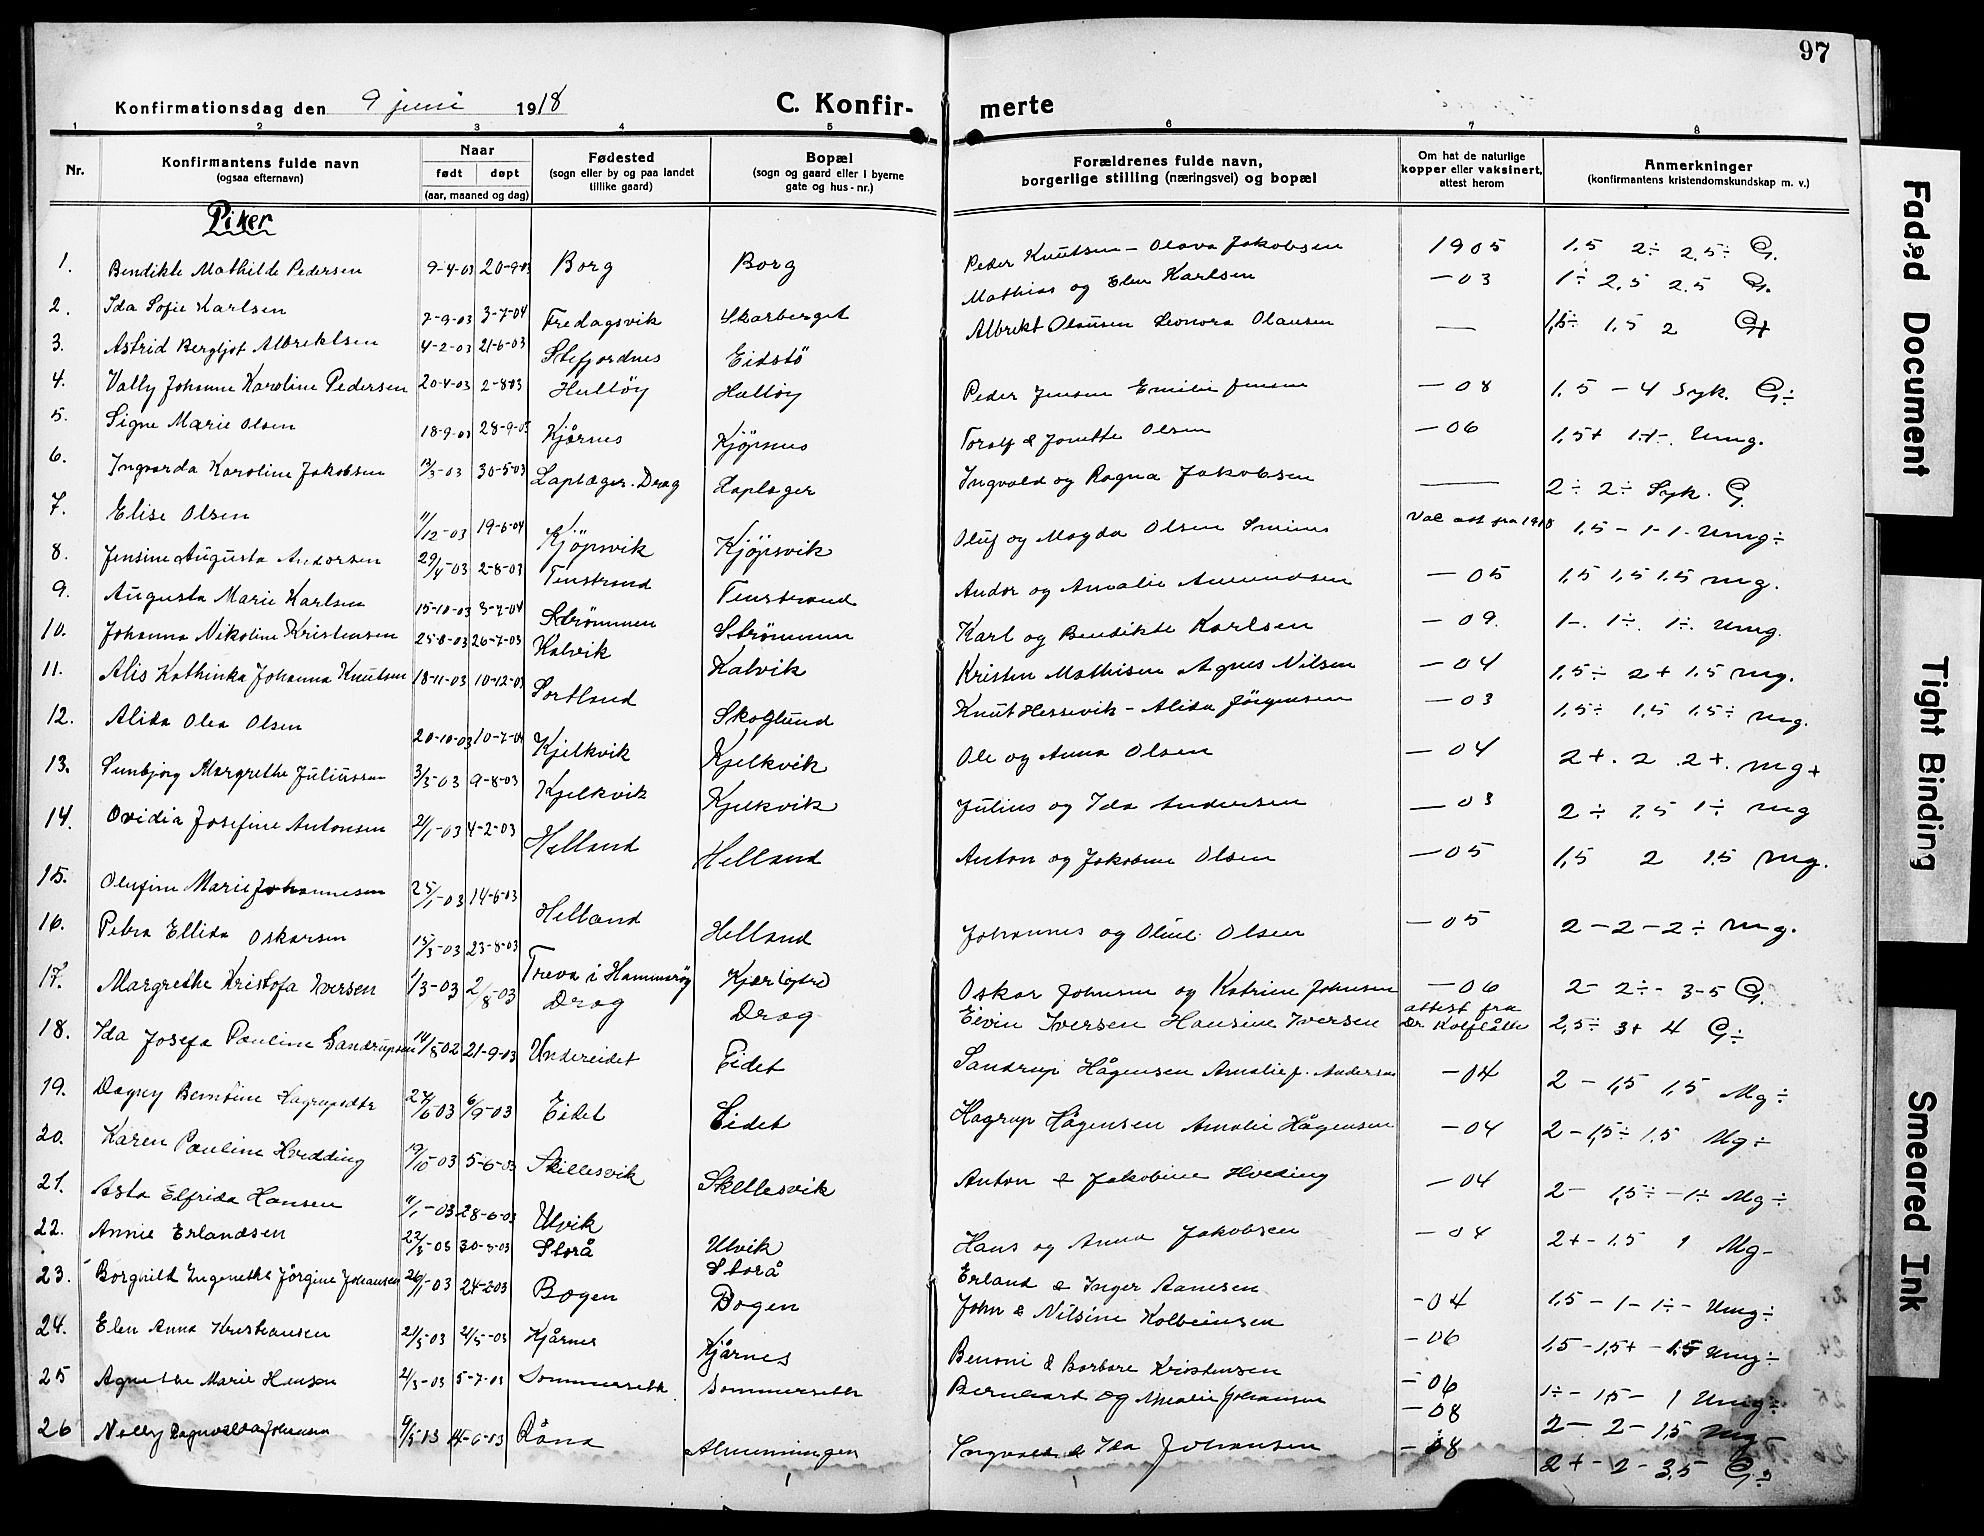 97
Konfirmationsdag den 9 juni 1918
C. Konfir-
merte
1 2 3 4 5 6 7 8
Nr.
Konfirmantens fulde navn
(ogsaa efternavn)
Naar
født døpt
(aar, maaned og dag)
Fødested
(sogn eller by og paa landet
tillike gaard)
Bopæl
(sogn og gaard eller i byerne
gate og hus-nr.)
Forældrenes fulde navn,
borgerlige stilling (næringsvei) og bopæl
Om hat de naturlige
kopper eller vaksinert,
attest herom
Anmerkninger
(konfirmantens kristendomskundskap m. v.)
Piker
1. Bendikte Mathilde Pedersen 9-4-03 20-9-03 Borg Borg Peder Knutsen - Olava Jakobsen 1905 1,5 2÷ 2,5÷ G.
2. Ida Sofie Karlsen 7-9-03 3-7-04 Fredagsvik Skarberget Mathias og Elen Karlsen -03 1÷ 2,5 2,5 G.
3. Astrid Bergljot Albriktsen 4-2-03 21-6-03 Stefjordnes Eidstö Albrikt Olausen Leonora Olausen — 1,5÷ 1,5 2 G+
4. Vally Johanne Karoline Pedersen 20-4-03 2-8-03 Hulløy Halløy Peder Jensen Emilie Jensen -08 1,5 - 4 Syk. G÷
5. Signe Marie Olsen 18-9-03 28-9-03 Kjårnes Kjøpsnes Toralf & Jonette Olsen -06 1,5+ 1-1-. Umg.
6. Ingvarda Karoline Jakobsen 12/3-03 30-5-03 Laplæger. Drag Laplæger Ingvald og Ragna Jakobsen — 2÷ 2÷ Syk. G.
7. Elise Olsen 11/12-03 19-6-04 Kjöpsvik Kjöpsvik Oluf og Magda Olsen Vac att fra 1918 1,5 - 1-1- Umg÷
8. Jensine Augusta Andorsen 29/4-03 2-8-03 Tenstrand Tenstrand Andor og Amalie Amundsen -05 1,5 1,5 1,5 mg.
9. Augusta Marie Karlsen 15-10-03 3-7-04 Strömmen Strömmen Karl og Bendikte Karlsen -09. 1-. 1÷. 1÷. Umg.
10. Johanna Nikoline Kristensen 25-8-03 26-7-03 Kalvik Kalvik Kristen Mathisen Agnes Nilsen -04 1,5÷ 2+ 1,5 mg.
11. Alis Kathinka Johanna Knutsen 18-11-03 10-12-03 Sortland Skoglund Knut Hessevik - Alida Jörgensen -03 1,5÷ 1,5 1,5÷ mg.
12. Alida Olea Olsen 20-10-03 10-7-04 Kjelkvik Kjelkvik Ole og Anna Olsen -04 2+. 2 .2+. mg+
13. Sunbjørg Margrethe Juliussen 3/5-03 9-8-03 Kjelkvik Kjelkvik Julius og Ida Andersen -03 2÷ 1,5 1÷ mg
14. Ovidia Josefine Antonsen 21/1-03 4-2-03 Helland Helland Anton og Jakobine Olsen -05 1,5 2 1,5 mg.
15. Olufine Marie Johannesen 25/1-03 14-6-03 Helland Helland Johannes og Oline Olsen -05 2-2-2÷ mg.
16. Petra Ellida Oskarsen 15/3-03 23-8-03 Treva i Hammerøy Oskar Johnsen og Katrine Johnsen -06 2- 2÷- 3-5 G.
17. Margrethe Kristofa Iversen 1/3-03 2/8-03 Drag Drag Eivin Iversen Hansine Iversen attest fra Dr Kolflåtte 2,5÷ 3+ 4 G÷
18. Ida Josefa Pauline Sandrupsen 14/8 02 21-9-03 Undereidet Eidet Sandrup Hågensen Amalie J. Andersen -04 2 - 1,5 1,5 Mg÷
19. Dagny Berntine Hagrupsdtr 27/6 03 6/9-03 Eidet Eidet Hagrup Hågensen Amalie Hågensen -04 2-1,5÷ 1,5 Mg÷
20. Karen Pauline Hvedding 19/10-03 5-6-03 Skillesvik Skellesvik Anton & Jakobine Hveding -04 2- 1,5÷ -1÷ Mg÷
21. Asta Elfrida Hansen 11/1-03 28-6-03 Ulvik Ulvik Hans og Anna Jakobsen -04 2+-1.5 1 Mg-
22. Annie Erlandsen 22/3-03 30-3-03 Storå Storå Erland & Inger Aanesen -04 1,5-1-1÷- Umg÷
23. Borghild Ingenette Jörgine Johansen 26/1-03 24-2-03 Bogen Bogen John & Nilsine Kolbeinsen -06 1,5-1,5+-1,5 Umg÷
24. Elen Anna Kristiansen 21/3-03 2/5-03 Kjårnes Kjårnes Benoni & Barbara Kristensen -06 1÷-1,5-1 Umg÷
25 Agnethe Marie Hansen 2/3-03 5-7-03 Sommerseth. Sommerseth Bernhard og Amalie Johansen -08 2- 2-1,5 mg-
26 Nelly Ragnvalda Johansen 9/5 13 14-6-13 Råna Almenningen Ingvald & Ida Johansen -08 2+-2-3,5 G.÷
Faded Document
Tight Binding
Smeared Ink